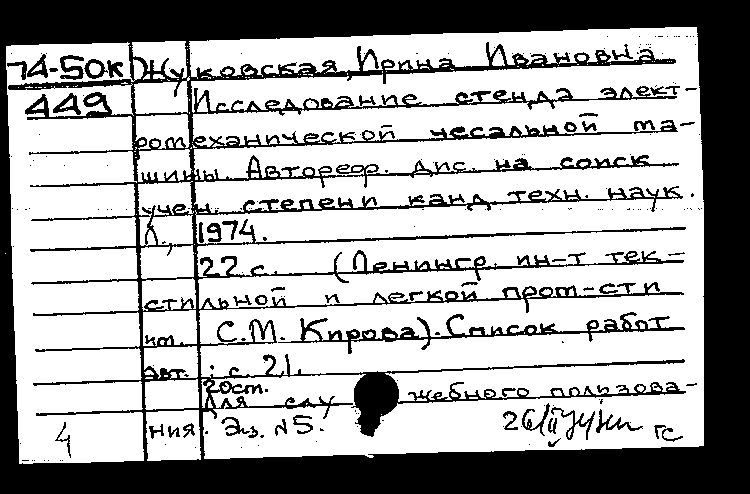 74-50к Жуковская, Ирина Ивановна
449 Исследование стенда элект-
ромеханической чесальной ма-
шины. Автореф. дис. на соиск
учен. степени канд. техн. наук.
Л., 1974.
22 с. (Ленингр. ин-т тек-
стильной и легкой пром-сти
им. С.М. Кирова). Список работ
авт.: с. 21.
20ст.
Для слу жебного пользова-
4 ния. Экз. №5. ГС